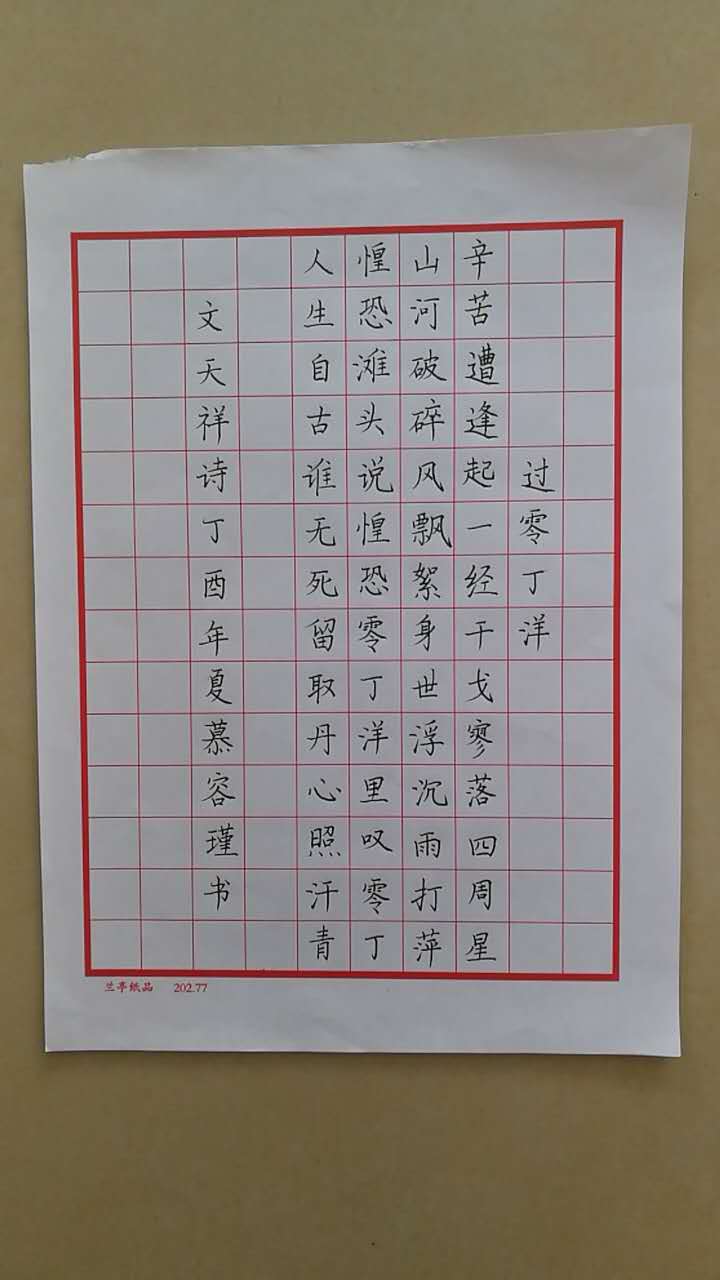 过零丁洋
辛苦遭逢起一经干戈寥落四周星
山河破碎风飘絮身世浮沉雨打萍
惶恐滩头说惶恐零丁洋里叹零丁
人生自古谁无死留取丹心照汗青
文天祥诗丁酉年夏慕容瑾书
兰亭纸品 202.77